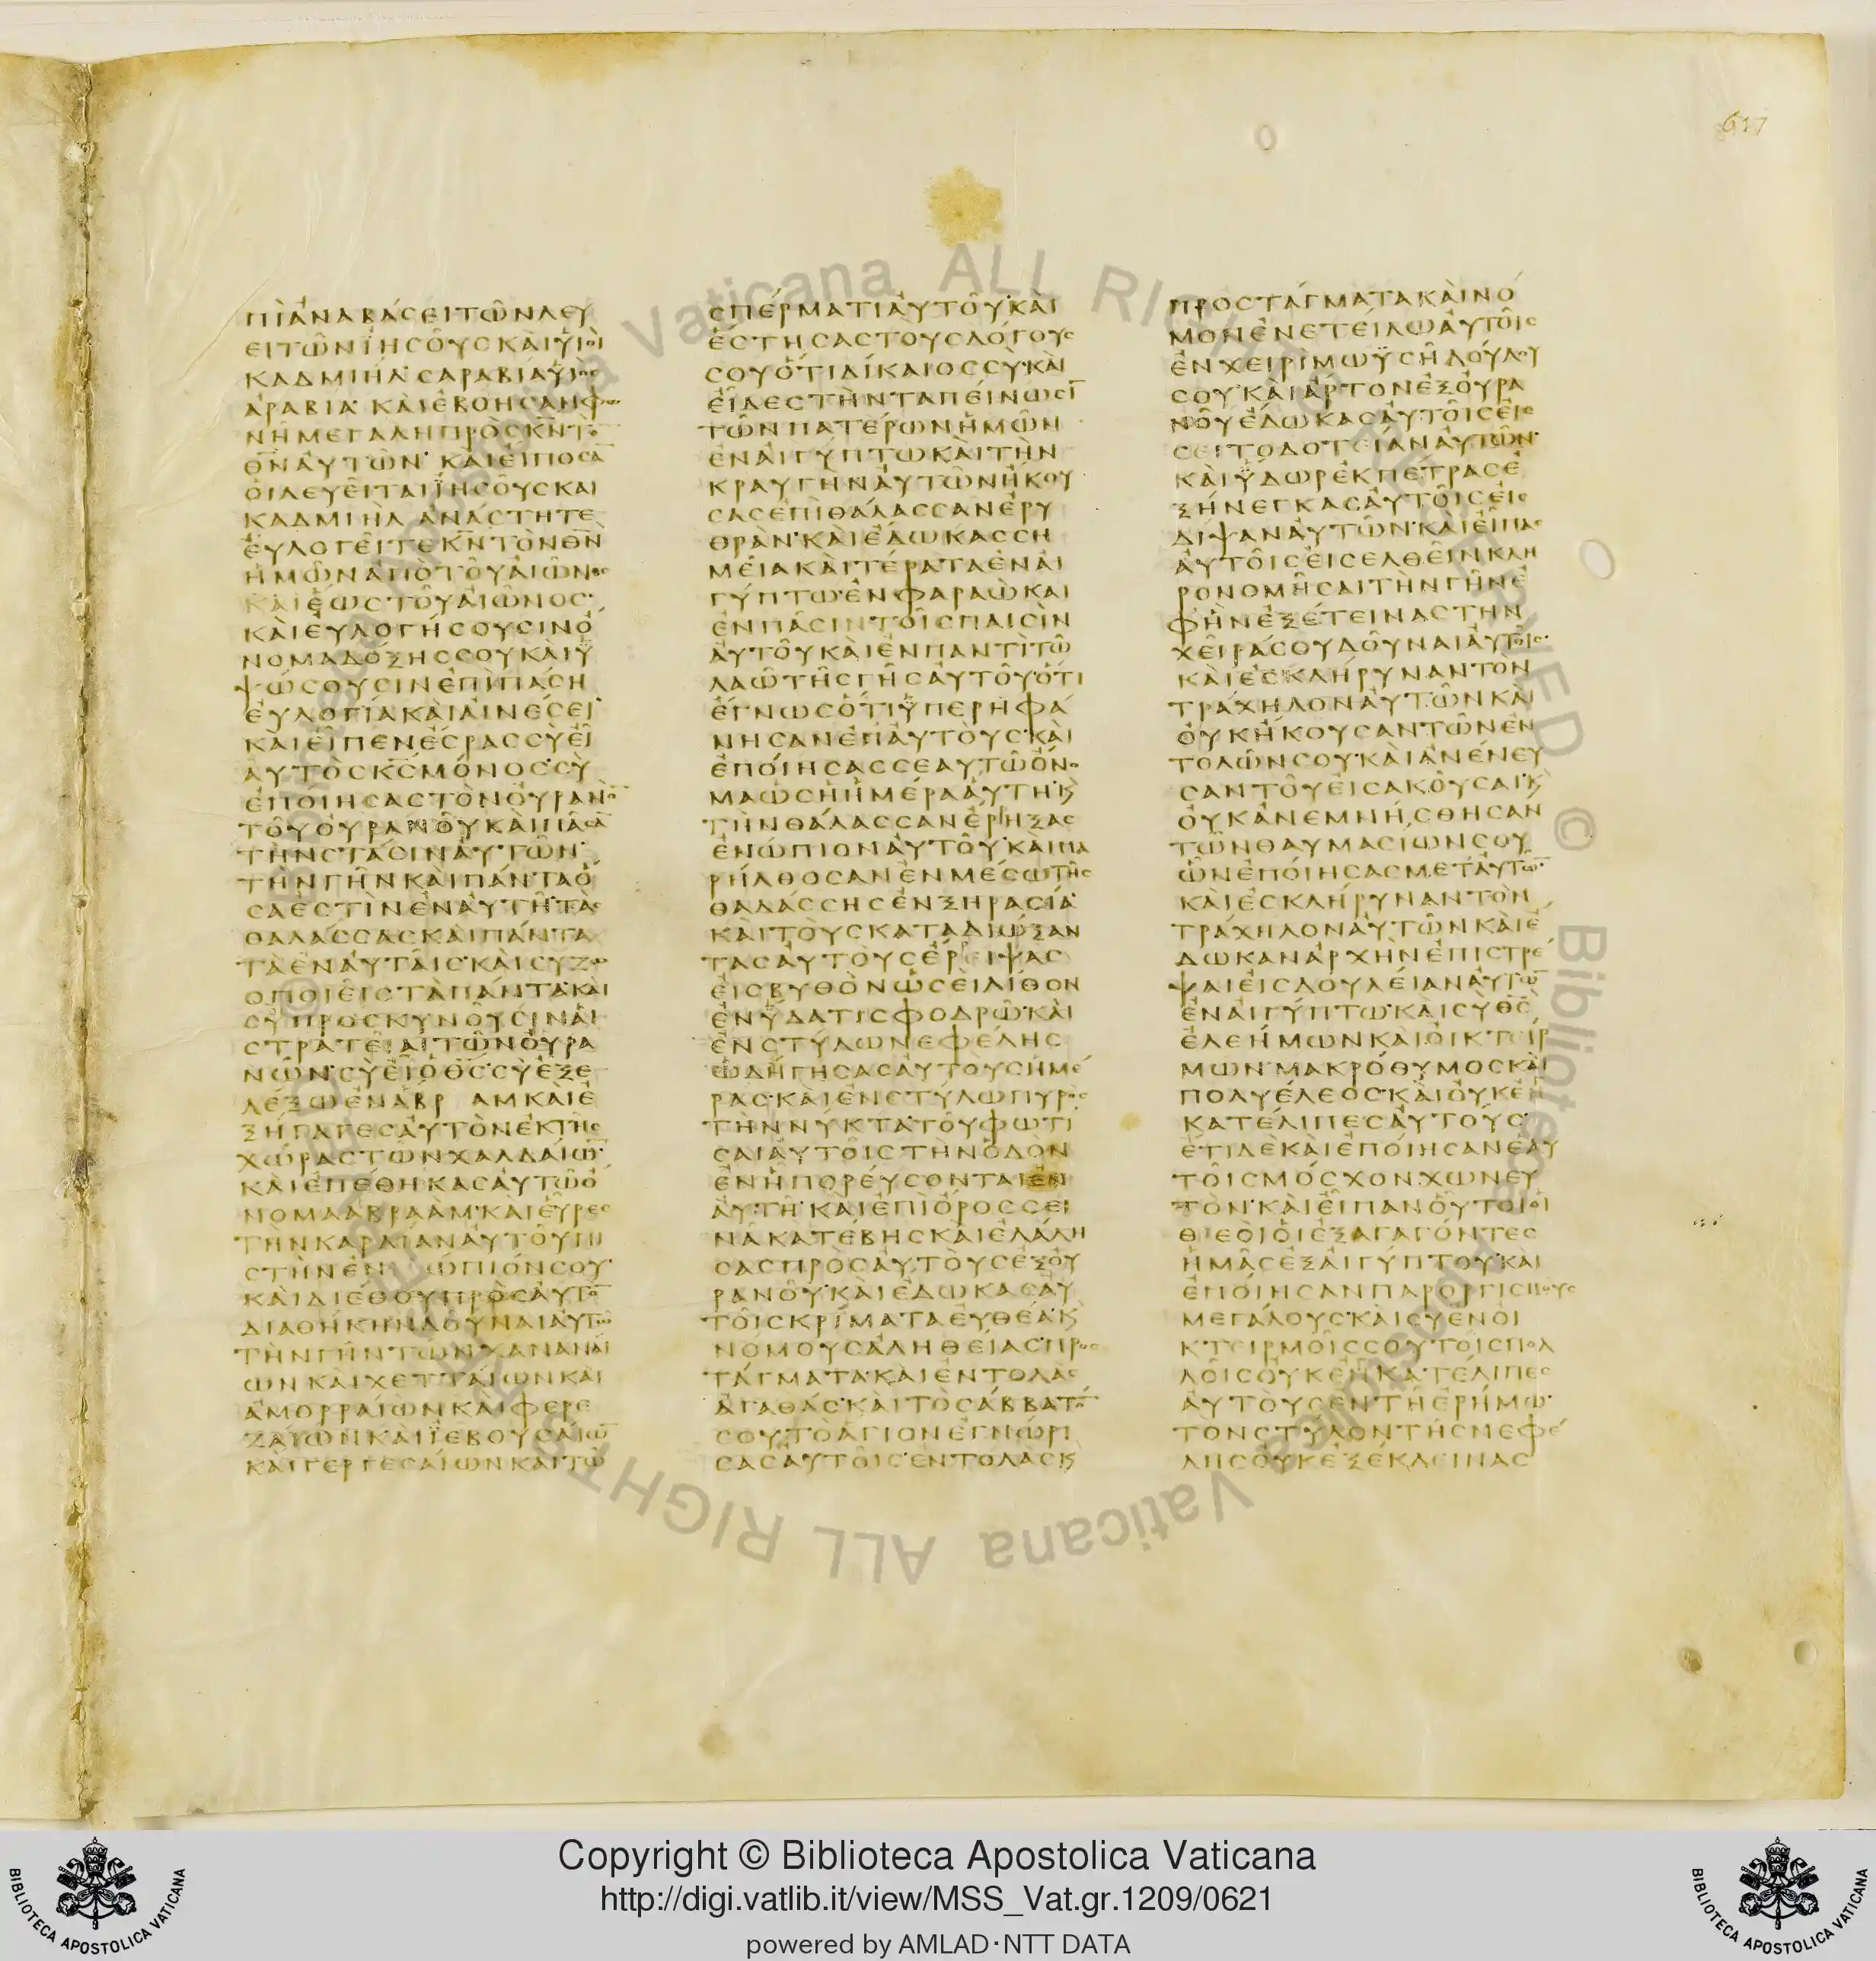 617
ΠΙΑΝΑΒΑΣΕΙΤΩΝΛΕΥ
ΕΙΤΩΝΙΗΣΟΥΣΚΑΙΥΙΟΙ
ΚΑΔΜΙΗΛΣΑΡΑΒΙΑΥΙΟΣ
ΑΡΑΒΙΑΚΑΙΕΒΟΗΣΑΝΦΩ
ΝΗΜΕΓΑΛΗΠΡΟΣΚΝΤΟ
ΘΝΑΥΤΩΝΚΑΙΕΙΠΟΣΑ
ΟΙΛΕΥΕΙΤΑΙΙΗΣΟΥΣΚΑΙ
ΚΑΔΜΙΗΛΑΝΑΣΤΗΤΕ
ΕΥΛΟΓΕΙΤΕΚΝΤΟΝΘΝ
ΗΜΩΝΑΠΟΤΟΥΑΙΩΝΟΣ
ΚΑΙΕΩΣΤΟΥΑΙΩΝΟΣ
ΚΑΙΕΥΛΟΓΗΣΟΥΣΙΝΟ
ΝΟΜΑΔΟΞΗΣΣΟΥΚΑΙΥ
ΨΩΣΟΥΣΙΝΕΠΙΠΑΣΗ
ΕΥΛΟΓΙΑΚΑΙΑΙΝΕΣΕΙ
ΚΑΙΕΙΠΕΝΕΣΡΑΣΣΥΕΙ
ΑΥΤΟΣΚΣΜΟΝΟΣΣΥ
ΕΠΟΙΗΣΑΣΤΟΝΟΥΡΑΝΟ
ΤΟΥΟΥΡΑΝΟΥΚΑΙΠΑΣΑ
ΤΗΝΣΤΑΣΙΝΑΥΤΩΝ
ΤΗΝΓΗΝΚΑΙΠΑΝΤΑΟ
ΣΑΕΣΤΙΝΕΝΑΥΤΗΤΑΣ
ΘΑΛΑΣΣΑΣΚΑΙΠΑΝΤΑ
ΤΑΕΝΑΥΤΑΙΣΚΑΙΣΥΖΩ
ΟΠΟΙΕΙΣΤΑΠΑΝΤΑΚΑΙ
ΣΥΠΡΟΣΚΥΝΟΥΣΙΝΑΙ
ΣΤΡΑΤΕΙΑΙΤΩΝΟΥΡΑ
ΝΩΝΣΥΕΙΟΘΣΣΥΕΞΕ
ΛΕΞΩΕΝΑΒΡΑΜΚΑΙΕ
ΞΗΓΑΓΕΣΑΥΤΟΝΕΚΤΗΣ
ΧΩΡΑΣΤΩΝΧΑΛΔΑΙΩ
ΚΑΙΕΠΕΘΗΚΑΣΑΥΤΩΟ
ΝΟΜΑΑΒΡΑΑΜΚΑΙΕΥΡΕΣ
ΤΗΝΚΑΡΔΙΑΝΑΥΤΟΥΠΙ
ΣΤΗΝΕΝΩΠΙΟΝΣΟΥ
ΚΑΙΔΙΕΘΟΥΠΡΟΣΑΥΤΟ
ΔΙΑΘΗΚΗΝΔΟΥΝΑΙΑΥΤΩ
ΤΗΝΓΗΝΤΩΝΧΑΝΑΝΑΙ
ΩΝΚΑΙΧΕΤΤΑΙΩΝΚΑΙ
ΑΜΟΡΡΑΙΩΝΚΑΙΦΕΡΕ
ΖΑΙΩΝΚΑΙΙΕΒΟΥΣΑΙΩ
ΚΑΙΓΕΡΓΕΣΑΙΩΝΚΑΙΤΩ
ΣΠΕΡΜΑΤΙΑΥΤΟΥΚΑΙ
ΕΣΤΗΣΑΣΤΟΥΣΛΟΓΟΥΣ
ΣΟΥΟΤΙΔΙΚΑΙΟΣΣΥΚΑΙ
ΕΙΔΕΣΤΗΝΤΑΠΕΙΝΩΣΙ
ΤΩΝΠΑΤΕΡΩΝΗΜΩΝ
ΕΝΑΙΓΥΠΤΩΚΑΙΤΗΝ
ΚΡΑΥΓΗΝΑΥΤΩΝΗΚΟΥ
ΣΑΣΕΠΙΘΑΛΑΣΣΑΝΕΡΥ
ΘΡΑΝΚΑΙΕΔΩΚΑΣΣΗ
ΜΕΙΑΚΑΙΤΕΡΑΤΑΕΝΑΙ
ΓΥΠΤΩΕΝΦΑΡΑΩΚΑΙ
ΕΝΠΑΣΙΝΤΟΙΣΠΑΙΣΙΝ
ΑΥΤΟΥΚΑΙΕΝΠΑΝΤΙΤΩ
ΛΑΩΤΗΣΓΗΣΑΥΤΟΥΟΤΙ
ΕΓΝΩΣΟΤΙΥΠΕΡΗΦΑ
ΝΗΣΑΝΕΠΑΥΤΟΥΣΚΑΙ
ΕΠΟΙΗΣΑΣΣΕΑΥΤΩΟΝΟ
ΜΑΩΣΗΗΜΕΡΑΑΥΤΗΚ
ΤΗΝΘΑΛΑΣΣΑΝΕΡΗΞΑΣ
ΕΝΩΠΙΟΝΑΥΤΟΥΚΑΙΠΑ
ΡΗΛΘΟΣΑΝΕΝΜΕΣΩΤΗΣ
ΘΑΛΑΣΣΗΣΕΝΞΗΡΑΣΙΑ
ΚΑΙΤΟΥΣΚΑΤΑΔΙΩΞΑΝ
ΤΑΣΑΥΤΟΥΣΕΡΕΙΨΑΣ
ΕΙΣΒΥΘΟΝΩΣΕΙΛΙΘΟΝ
ΕΝΥΔΑΤΙΣΦΟΔΡΩΚΑΙ
ΕΝΣΤΥΛΩΝΕΦΕΛΗΣ
ΩΔΗΓΗΣΑΣΑΥΤΟΥΣΗΜΕ
ΡΑΣΚΑΙΕΝΣΤΥΛΩΠΥΡΟΣ
ΤΗΝΝΥΚΤΑΤΟΥΦΩΤΙ
ΣΑΙΑΥΤΟΙΣΤΗΝΟΔΟΝ
ΕΝΗΠΟΡΕΥΣΟΝΤΑΙΕΝ
ΑΥΤΗΚΑΙΕΠΙΟΡΟΣΣΕΙ
ΝΑΚΑΤΕΒΗΣΚΑΙΕΛΑΛΗ
ΣΑΣΠΡΟΣΑΥΤΟΥΣΕΞΟΥ
ΡΑΝΟΥΚΑΙΕΔΩΚΑΣΑΥ
ΤΟΙΣΚΡΙΜΑΤΑΕΥΘΕΑΚ
ΝΟΜΟΥΣΑΛΗΘΕΙΑΣΠΡΟΣ
ΤΑΓΜΑΤΑΚΑΙΕΝΤΟΛΑΣ
ΑΓΑΘΑΣΚΑΙΤΟΣΑΒΒΑΤΟ
ΣΟΥΤΟΑΓΙΟΝΕΓΝΩΡΙ
ΣΑΣΑΥΤΟΙΣΕΝΤΟΛΑΣΚ
ΠΡΟΣΤΑΓΜΑΤΑΚΑΙΝΟ
ΜΟΝΕΝΕΤΕΙΛΩΑΥΤΟΙΣ
ΕΝΧΕΙΡΙΜΩΥΣΗΔΟΥΛΟΥ
ΣΟΥΚΑΙΑΡΤΟΝΕΞΟΥΡΑ
ΝΟΥΕΔΩΚΑΣΑΥΤΟΙΣΕΙΣ
ΣΕΙΤΟΔΟΤΕΙΑΝΑΥΤΩΝ
ΚΑΙΥΔΩΡΕΚΠΕΤΡΑΣΕ
ΞΗΝΕΓΚΑΣΑΥΤΟΙΣΕΙΣ
ΔΙΨΑΝΑΥΤΩΝΚΑΙΕΙΠΑΣ
ΑΥΤΟΙΣΕΙΣΕΛΘΕΙΝΚΛΗ
ΡΟΝΟΜΗΣΑΙΤΗΝΓΗΝΕ
ΦΗΝΕΞΕΤΕΙΝΑΣΤΗΝ
ΧΕΙΡΑΣΟΥΔΟΥΝΑΙΑΥΤΟΙΣ
ΚΑΙΕΣΚΛΗΡΥΝΑΝΤΟΝ
ΤΡΑΧΗΛΟΝΑΥΤΩΝΚΑΙ
ΟΥΚΗΚΟΥΣΑΝΤΩΝΕΝ
ΤΟΛΩΝΣΟΥΚΑΙΑΝΕΝΕΥ
ΣΑΝΤΟΥΕΙΣΑΚΟΥΣΑΙΚ
ΟΥΚΑΝΕΜΝΗΣΘΗΣΑΝ
ΤΩΝΘΑΥΜΑΣΙΩΝΣΟΥ
ΩΝΕΠΟΙΗΣΑΣΜΕΤΑΥΤΩ
ΚΑΙΕΣΚΛΗΡΥΝΑΝΤΟΝ
ΤΡΑΧΗΛΟΝΑΥΤΩΝΚΑΙΕ
ΔΩΚΑΝΑΡΧΗΝΕΠΙΣΤΡΕ
ΨΑΙΕΙΣΔΟΥΛΕΙΑΝΑΥΤΩ
ΕΝΑΙΓΥΠΤΩΚΑΙΣΥΘΣ
ΕΛΕΗΜΩΝΚΑΙΟΙΚΤΕΙΡ
ΜΩΝΜΑΚΡΟΘΥΜΟΣΚΑΙ
ΠΟΛΥΕΛΕΟΣΚΑΙΟΥΚΕΝ
ΚΑΤΕΛΙΠΕΣΑΥΤΟΥΣ
ΕΤΙΔΕΚΑΙΕΠΟΙΗΣΑΝΕΑΥ
ΤΟΙΣΜΟΣΧΟΝΧΩΝΕΥ
ΤΟΝΚΑΙΕΙΠΑΝΟΥΤΟΙΟΙ
ΘΕΟΙΟΙΕΞΑΓΑΓΟΝΤΕΣ
ΗΜΑΣΕΞΑΙΓΥΠΤΟΥΚΑΙ
ΕΠΟΙΗΣΑΝΠΑΡΟΡΓΙΣΜΟΥΣ
ΜΕΓΑΛΟΥΣΚΑΙΣΥΕΝΟΙ
ΚΤΕΙΡΜΟΙΣΣΟΥΤΟΙΣΠΟΛ
ΛΟΙΣΟΥΚΕΝΚΑΤΕΛΙΠΕΣ
ΑΥΤΟΥΣΕΝΤΗΕΡΗΜΩ
ΤΟΝΣΤΥΛΟΝΤΗΣΝΕΦΕ
ΛΗΣΟΥΚΕΞΕΚΛΕΙΝΑΣ
Copyright © Biblioteca Apostolica Vaticana
http://digi.vatlib.it/view/MSS_Vat.gr.1209/0621
powered by AMLAD·NTT DATA
BIBLIOTECA APOSTOLICA VATICANA
BIBLIOTECA APOSTOLICA VATICANA